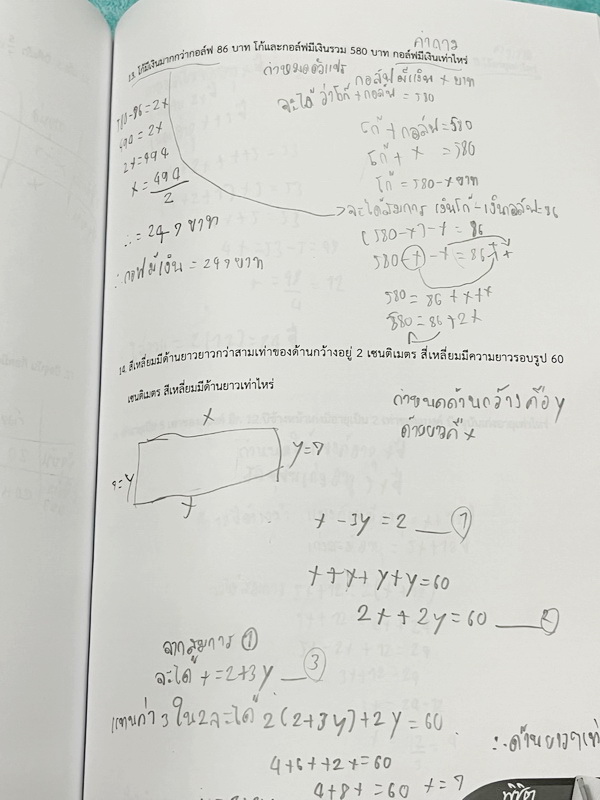 13. โก้มีเงินมากกว่ากอล์ฟ 86 บาท โก้และกอล์ฟมีเงินรวม 580 บาท กอล์ฟมีเงินเท่าไหร่
คำถาม
กำหนดตัวแปร กอล์ฟมีเงิน x บาท
จะได้ว่าโก้ + กอล์ฟ = 580
โก้ + กอล์ฟ = 580
โก้ + x = 580
โก้ = 580-x บาท
จะได้สมการ เงินโก้ - เงินกอล์ฟ = 86
(580-x)-x = 86
580-x-x = 86
580 = 86+x+x
580 = 86+2x
-86=2x
494 = 2x
2x=494
x = 494
2
∴ = 247 บาท
∴ กอล์ฟมีเงิน = 247 บาท
14. สี่เหลี่ยมมีด้านยาวยาวกว่าสามเท่าของด้านกว้างอยู่ 2 เซนติเมตร สี่เหลี่ยมมีความยาวรอบรูป 60
เซนติเมตร สี่เหลี่ยมมีด้านยาวเท่าไหร่
กำหนดด้านกว้างคือ y
ด้านยาวคือ x
x
y=7
=y
x
x - 3y = 2 1
x+x+y+y=60
2x+2y=60 2
จากสมการ 1
จะได้ x=2+3y 3
แทนค่า 3 ใน 2 จะได้ 2(2+3y)+2y=60
4+6 +2 =60
4+8 =60
=7
∴ ด้านยาว